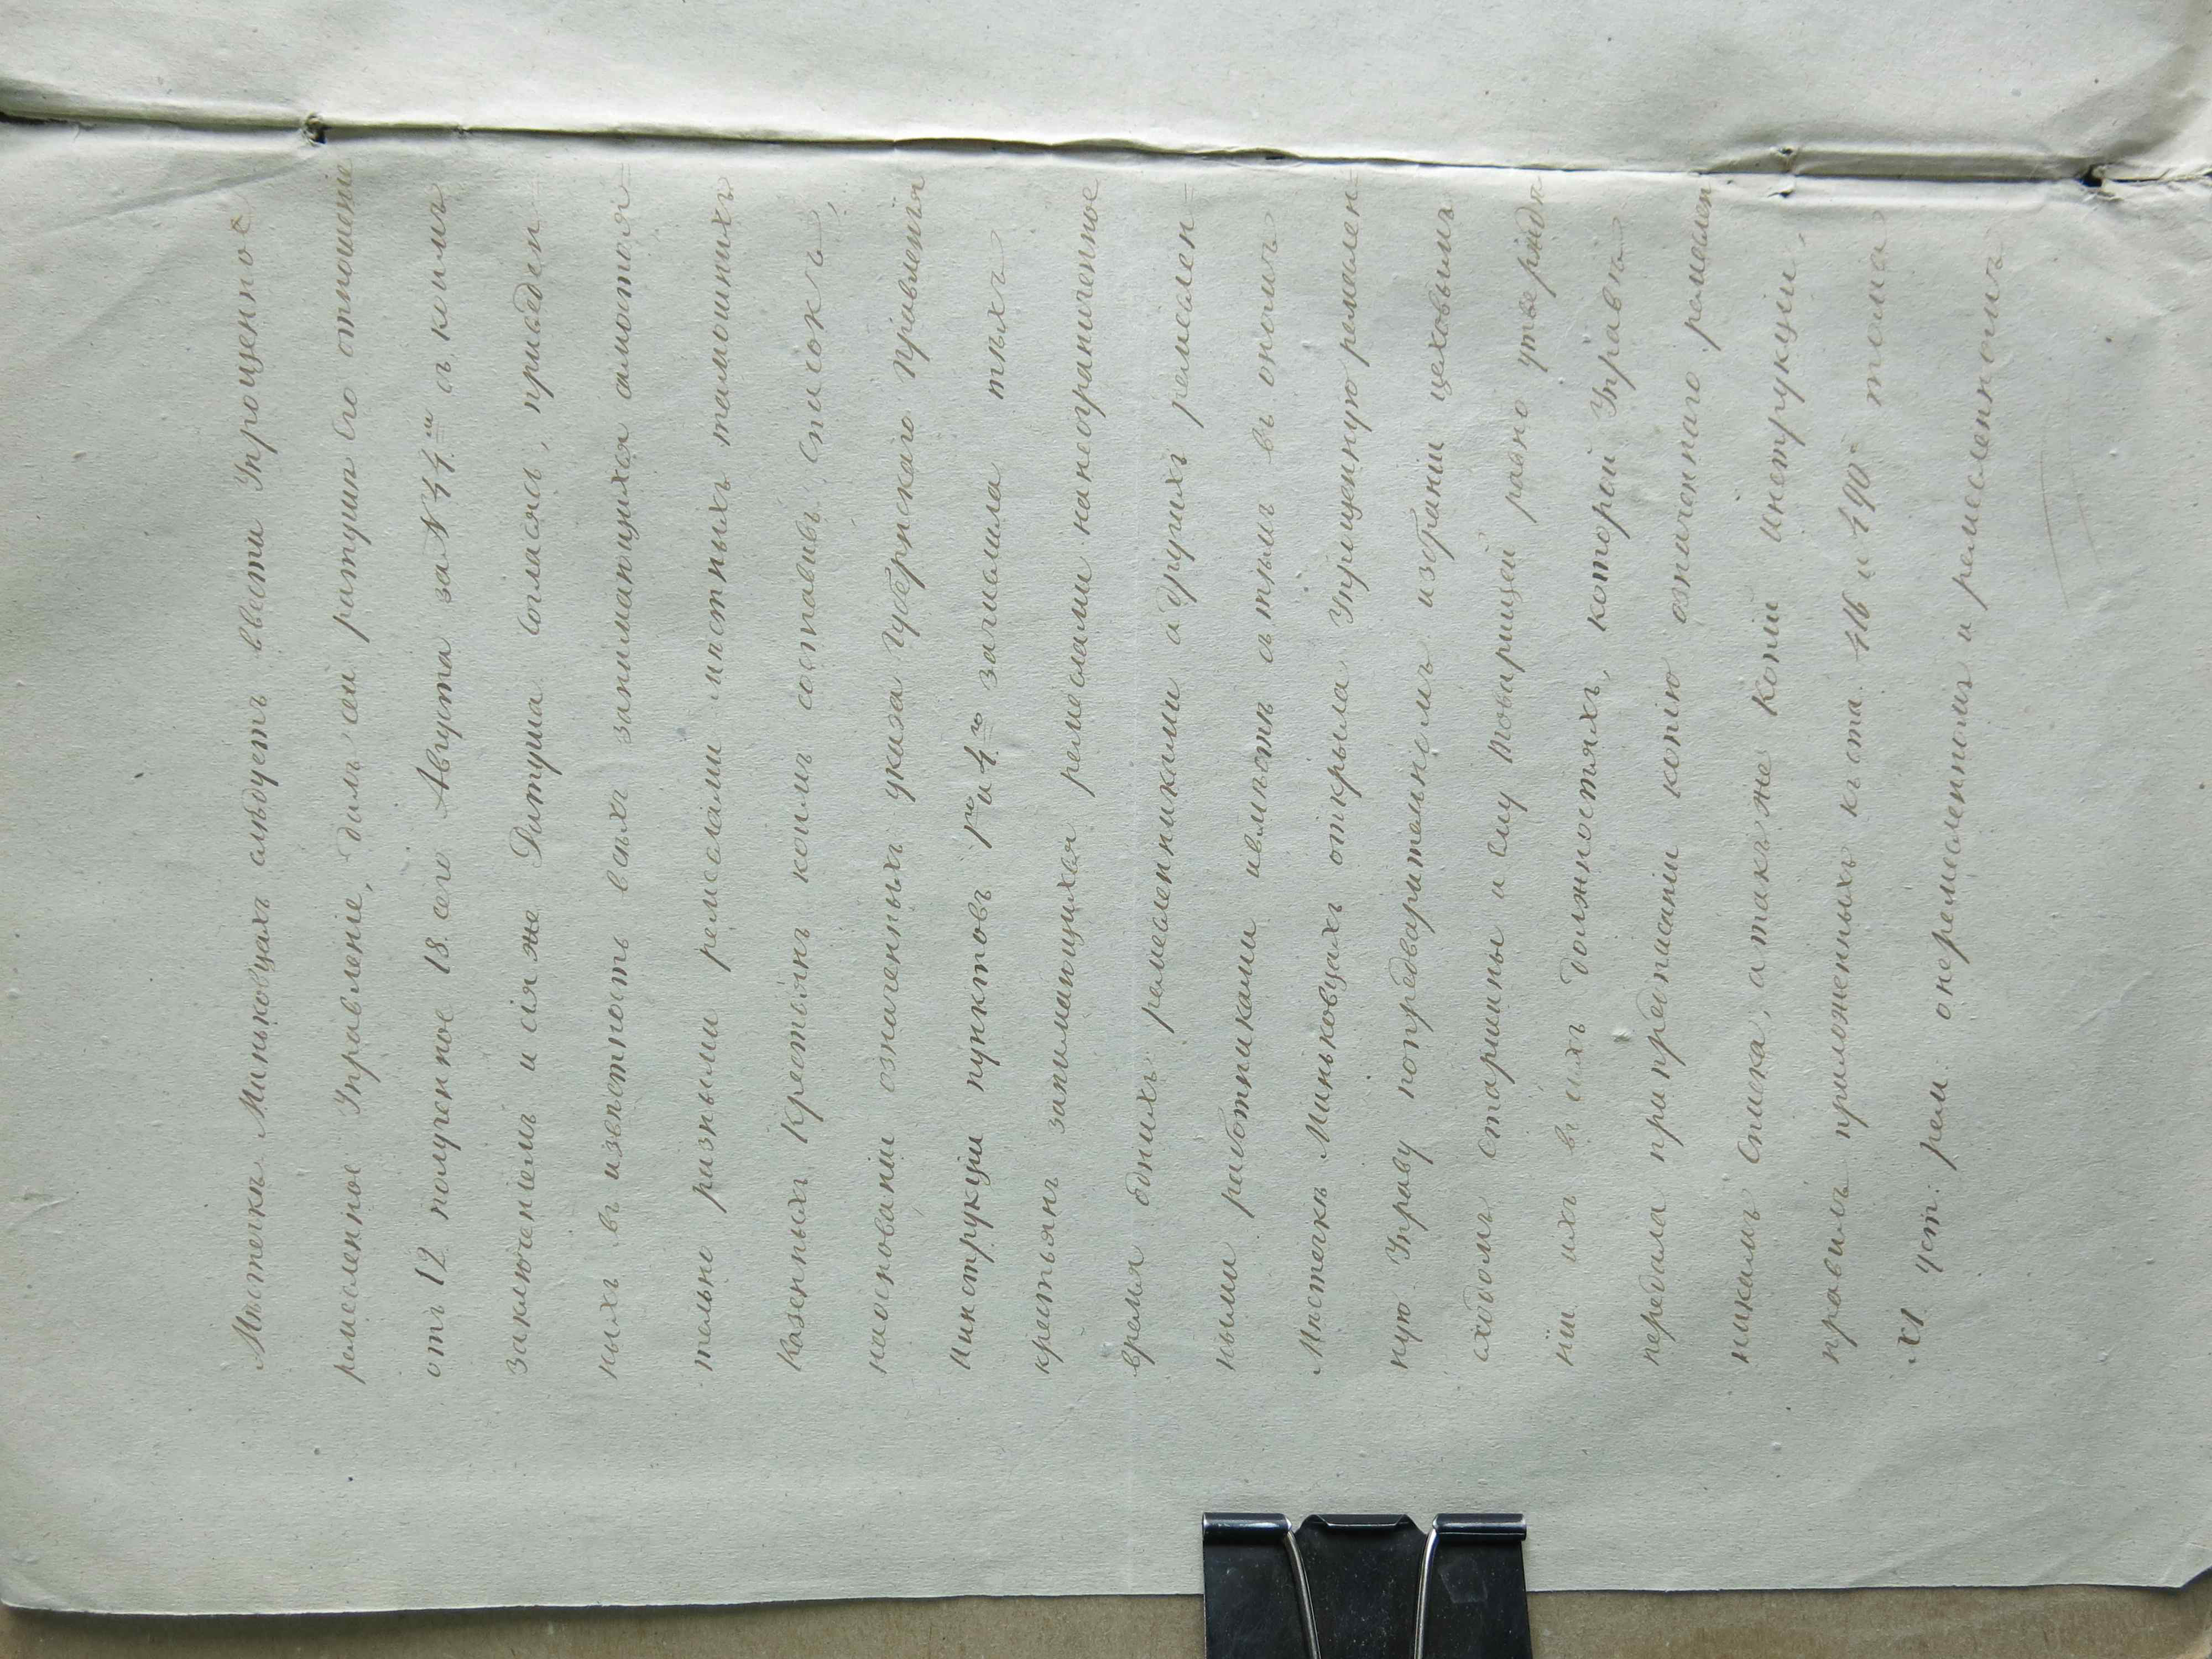 Мѣстечкѣ Миньковцахъ слѣдуетъ ввести Упрощенное
ремесленное Управленіе, далъ сей ратуши Его отношеніе
отъ 12 полученное 18 сего Августа за № съ коимъ
заключеніемъ и сія же Ратуша согласясь, приведен=
ныхъ въ извѣстность всѣхъ занимающихся самостоя=
тельно разными ремеслами мѣстныхъ тамошнихъ
Казенныхъ Крестьянъ коимъ составивъ списокъ,
наоснованіи означенныхъ указа Губернскаго Правленія
Инструкціи пунктовъ 1го и 4го зачислила тѣхъ
крестьянъ занимающихся ремеслами нанеограниченное
время однихъ ремесленниками а другихъ ремеслен=
ными работниками ивмѣстѣ сѣтѣмъ въ ономъ
Мѣстечкѣ Миньковцахъ открыла Упрощенную ремеслен=
ную Управу попредварительномъ избраніи цеховымъ
сходомъ старшины и ему товарищей равно утвержде
ніи ихъ въ сихъ должностяхъ, которой Управѣ
передала при предписаніи копію означеннаго ремеслен
никамъ Списка, атакъ же Копіи инструкціи,
правилъ приложенныхъ къ ста. 416 и 490 тома
XI уст: рем: оперемсленномъ и ремесленномъ